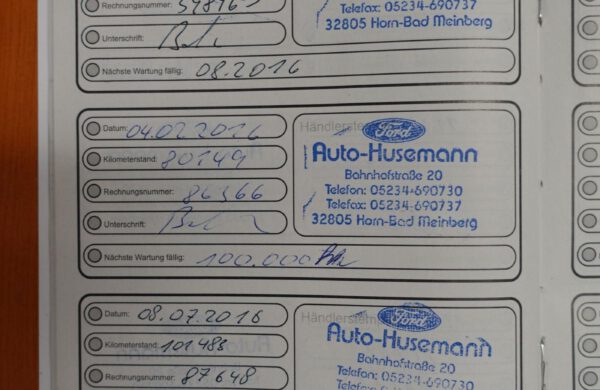 Rechnungsnummer:
Telefax: 05234-690737
32805 Horn-Bad Meinberg
Unterschrift:
Nächste Wartung fällig: 08.2016
Datum: 04.02.2016
Händlerstem
Ford
Kilometerstand: 80149
Auto-Husemann
Bahnhofstraße 20
Rechnungsnummer: 86366
Telefon: 05234-690730
Telefax: 05234-690737
Unterschrift:
32805 Horn-Bad Meinberg
Nächste Wartung fällig: 100.000
Datum: 08.07.2016
Händlerstem
Ford
Kilometerstand: 101485
Auto-Husemann
Bahnhofstraße 20
Rechnungsnummer: 87648
Telefon: 05234-690730